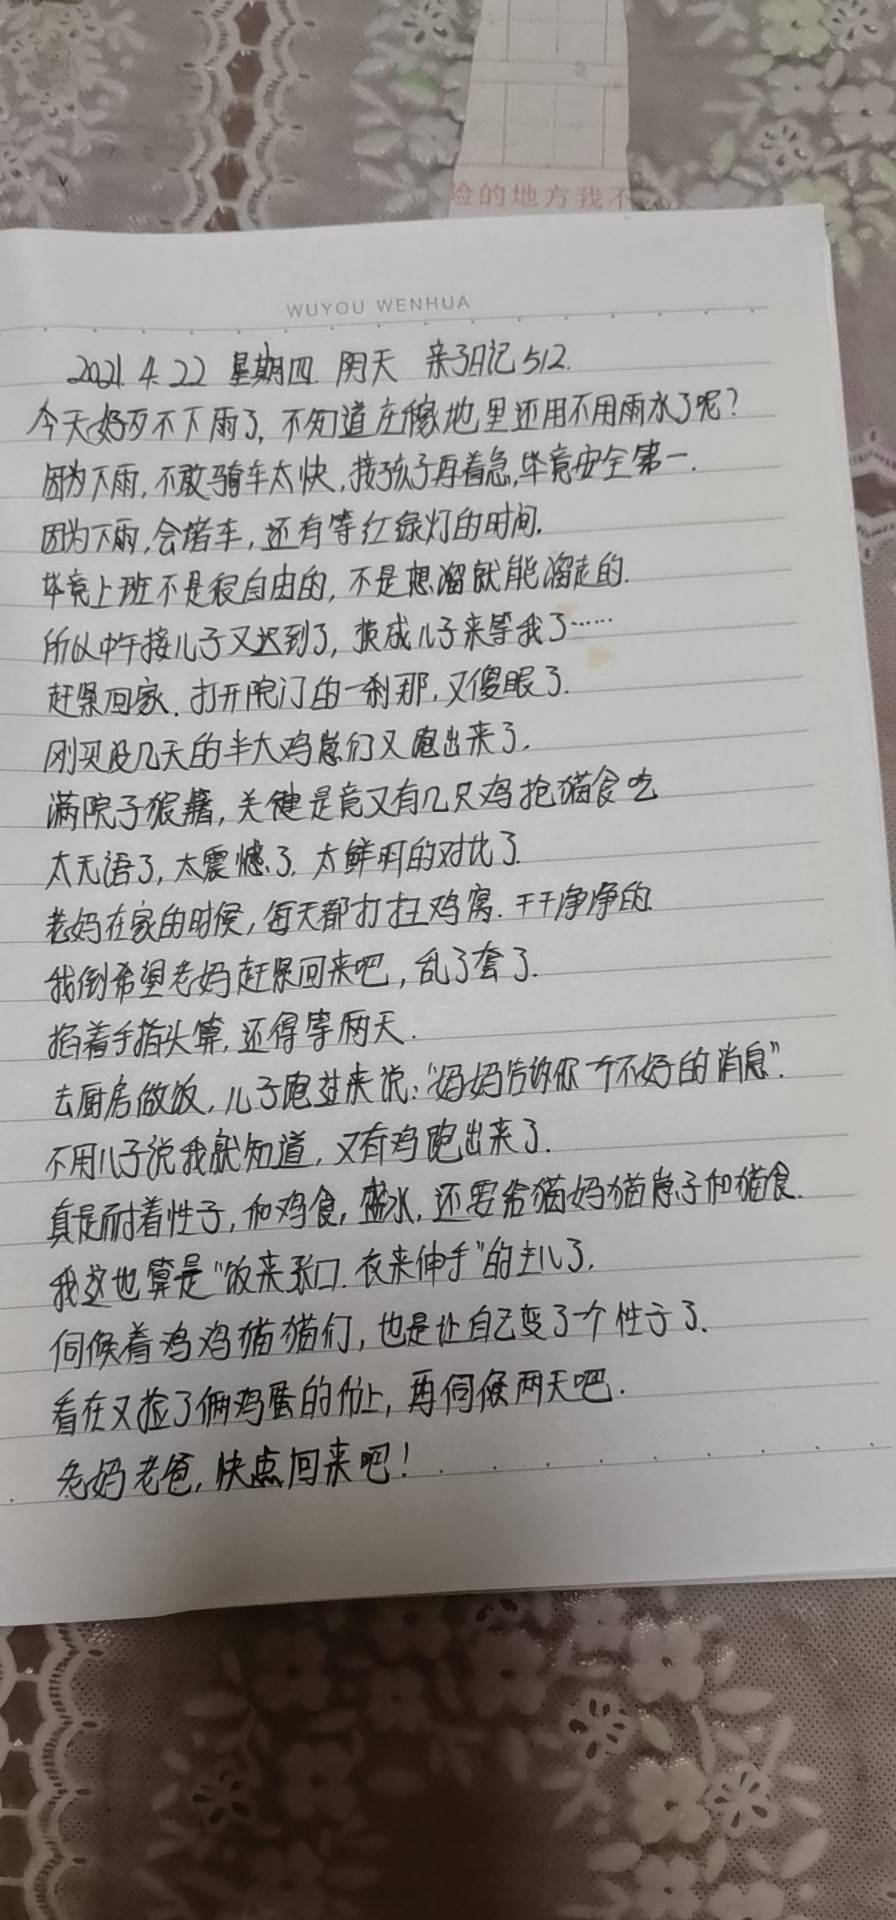 险的地方我不
WUYOU WENHUA
2021.4.22 星期四 阴天 亲子日记512.
今天好歹不下雨了,不知道庄稼地里还用不用雨水了呢?
因为下雨,不敢骑车太快,接孩子再着急,毕竟安全第一.
因为下雨,会堵车,还有等红绿灯的时间.
毕竟上班不是很自由的,不是想溜就能溜走的.
所以中午接儿子又迟到了,换成儿子来等我了……
赶紧回家.打开院门的一刹那,又傻眼了.
刚买没几天的半大鸡崽们又跑出来了.
满院子狼藉,关键是竟又有几只鸡抢猫食吃
太无语了,太震憾了.太鲜明的对比了.
老妈在家的时候,每天都打扫鸡窝.干干净净的.
我倒希望老妈赶紧回来吧,乱了套了.
掐着手指头算,还得等两天.
去厨房做饭,儿子跑过来说:“妈妈告诉你一个不好的消息”.
不用儿子说我就知道,又有鸡跑出来了.
真是耐着性子,和鸡食,盛水,还要给猫妈猫崽子和猫食.
我这也算是“饭来张口.衣来伸手”的主儿了.
伺候着鸡鸡猫猫们,也是让自己变了个性子了.
看在又捡了俩鸡蛋的份上,再伺候两天吧.
老妈老爸,快点回来吧!